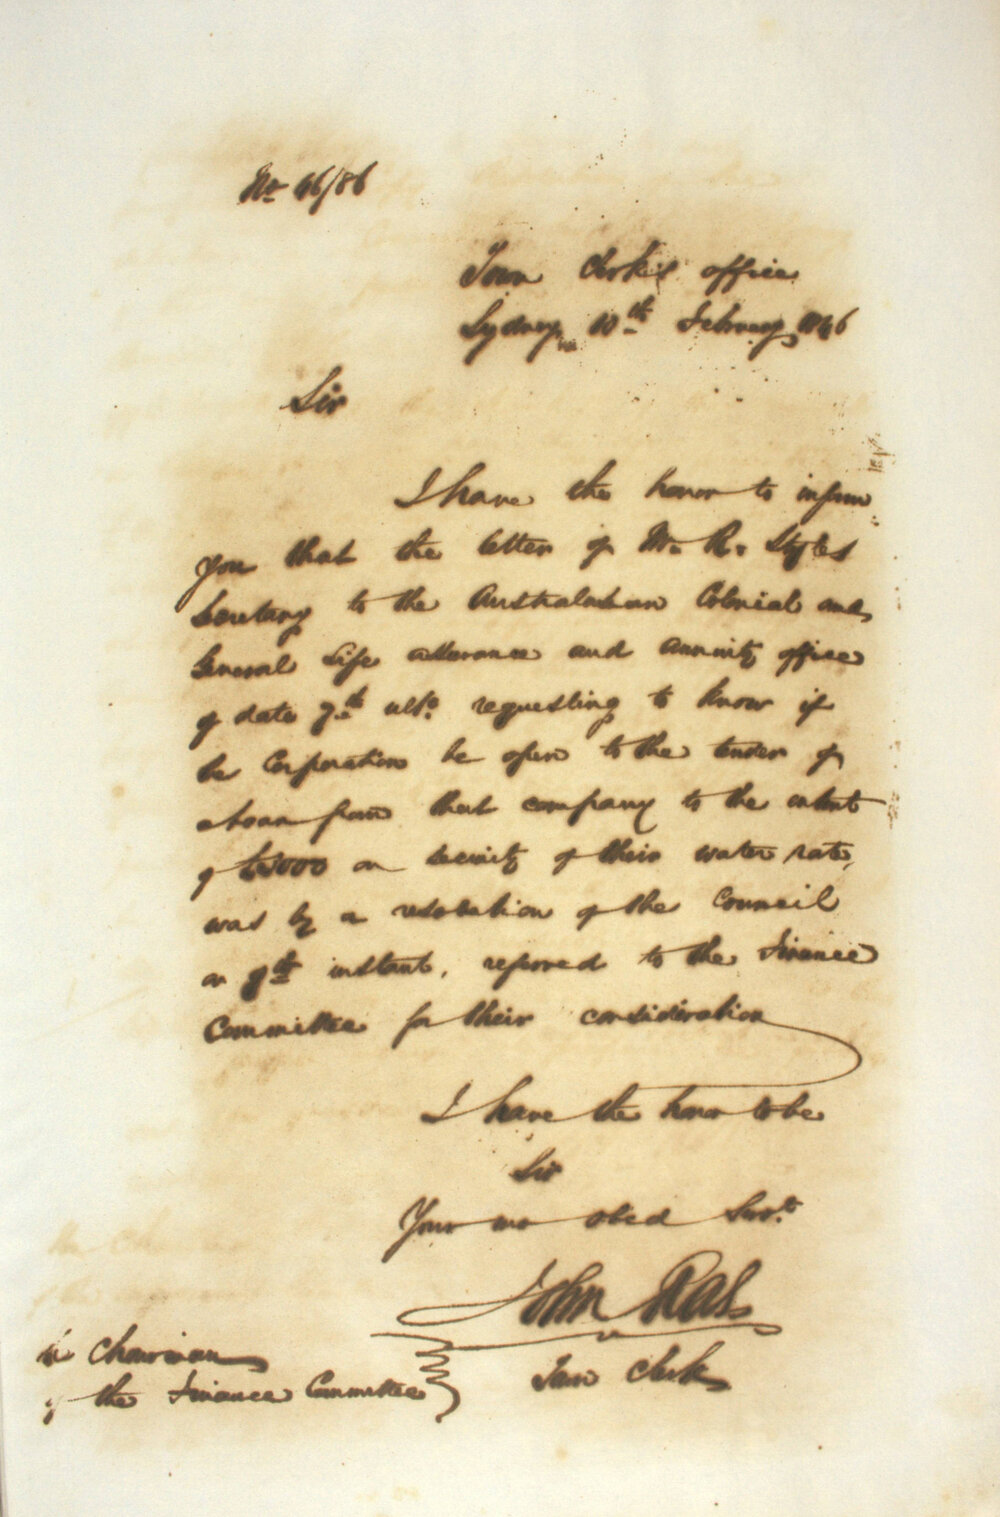 No 46/86
Town Clerk's office
Sydney 10th February 1846
Sir
I have the honor to inform
you that the letter of Mr. R. Styles
Secretary to the Australasian Colonial and
General Life assurance and annuity office
of date 7th ulto. requesting to know if
the Corporation be open to the tender of
a loan from that company to the extent
of on security of their water rate,
was by a resolution of the Council
on 9th instant, referred to the Finance
Committee for their consideration
I have the honor to be
Sir
Your mo obed Servt.
John Rae
Town Clerk
The Chairman
of the Finance Committee